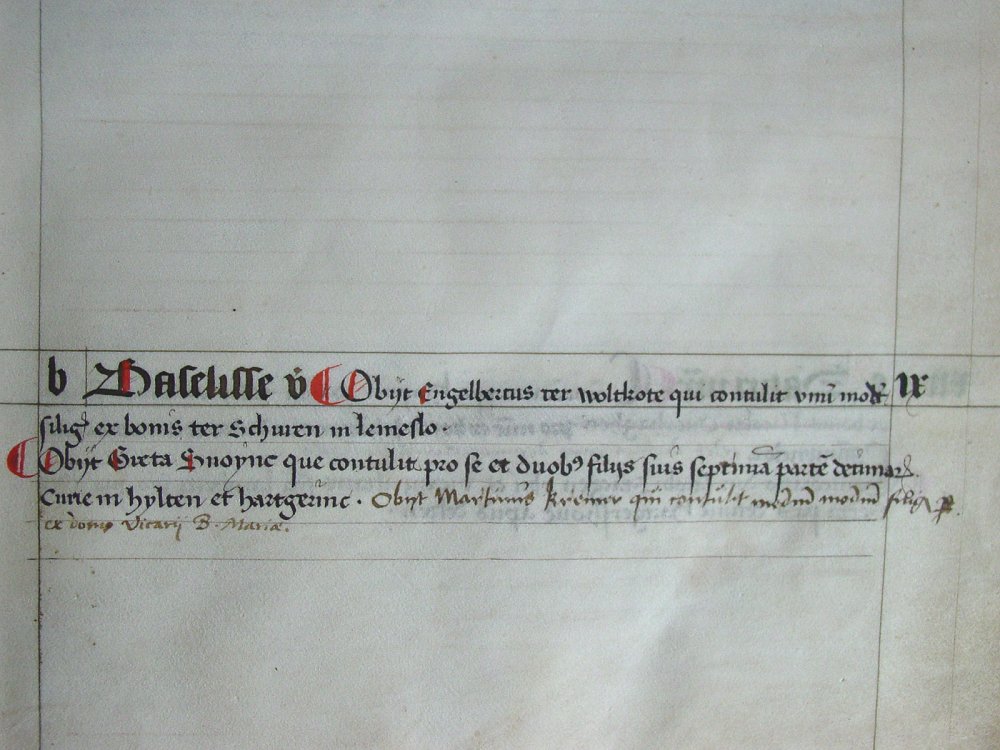 b Basilisse v̄ Obijt Engelbertus ter woltkote qui contulit vnū modꝝ IX
siligꝭ ex bonis ter Schuren in lemeslo ·
Obijt Greta Snoync que contulit pro se et duobꝰ filijs suis septimā partē decimarꝝ
Curie in hylten et hartgerinc · Obijt Martinus Kremer qui contulit modiū siligꝭ
ex domo Vicarij B. Mariæ.